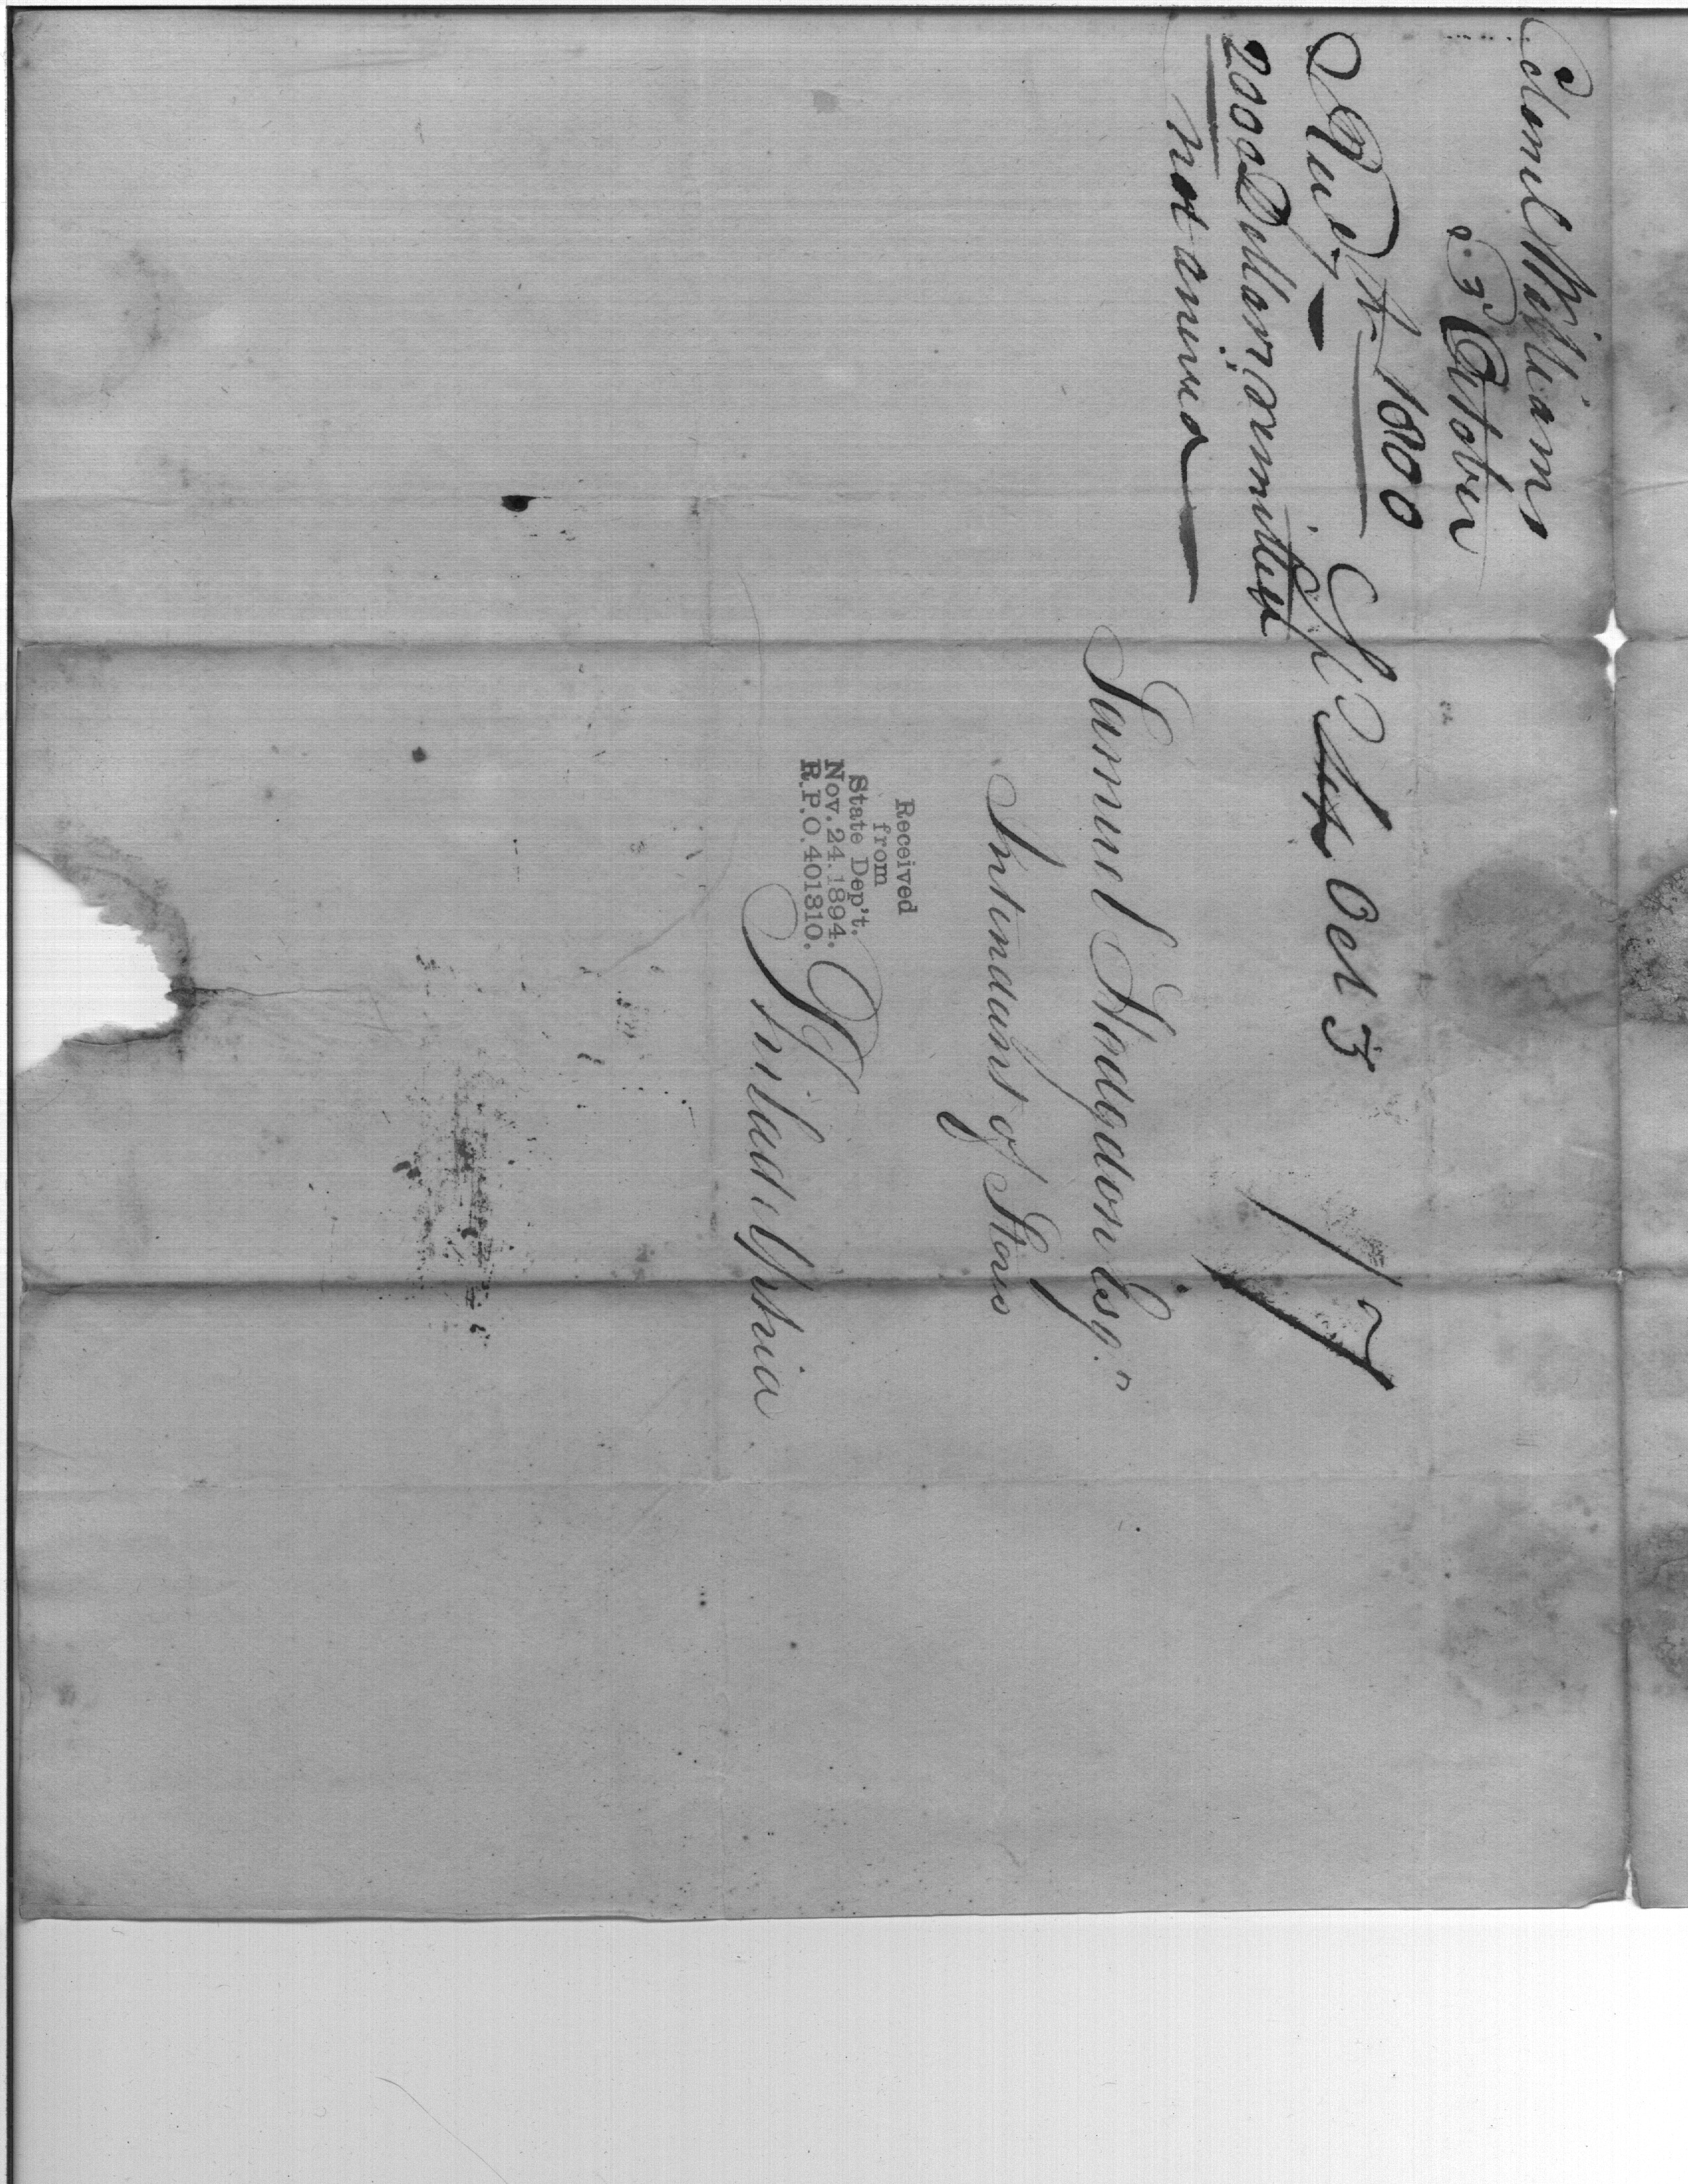 Colonel Williams
3 October
1800
2000 Dollars remitted
not arrived
Oct 3
17
Samuel Hodgdon Esqr
Intendant of Stores
Philadelphia
Received
from
State Dep't.
Nov. 24. 1894.
R.P.O. 401310.